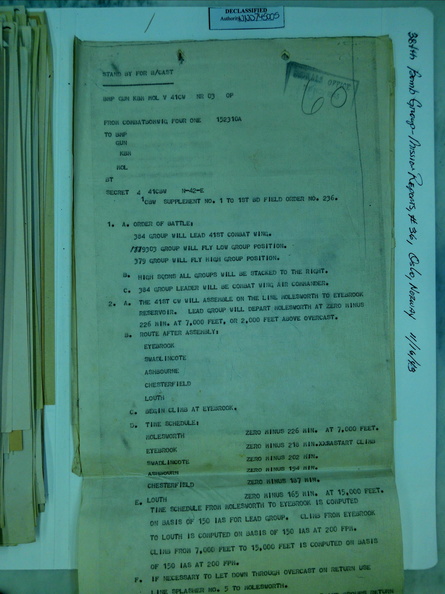 DECLASSIFIED
Authority NND745005
384th Bomb Group - Mission Reports, # 36, Oslo, Norway 11/16/43
STAND BY FOR W/CAST
BMP GUN KBR MOL V 41CW NR 03 OP
FROM COMBATWING FOUR ONE 152310A
TO BMP
GUN
KBR
MOL
BT
SECRET 41CBW
41CBW SUPPLEMENT NO. 1 TO 1ST BD FIELD ORDER NO. 236.
1. A. ORDER OF BATTLE:
384 GROUP WILL LEAD 41ST COMBAT WING.
303 GROUP WILL FLY LOW GROUP POSITION.
379 GROUP WILL FLY HIGH GROUP POSITION.
B. HIGH SQDNS ALL GROUPS WILL BE STACKED TO THE RIGHT.
C. 384 GROUP LEADER WILL BE COMBAT WING AIR COMMANDER.
2. A. THE 41ST CW WILL ASSEMBLE ON THE LINE MOLESWORTH TO EYEBROOK
RESERVOIR. LEAD GROUP WILL DEPART MOLESWORTH AT ZERO MINUS
226 MIN. AT 7,000 FEET, OR 2,000 FEET ABOVE OVERCAST.
B. ROUTE AFTER ASSEMBLY:
EYEBROOK
SWADLINCOTE
ASHBOURNE
CHESTERFIELD
LOUTH
C. BEGIN CLIMB AT EYEBROOK.
D. TIME SCHEDULE:
MOLESWORTH ZERO MINUS 226 MIN. AT 7,000 FEET.
EYEBROOK ZERO MINUS 218 MIN. START CLIMB
SWADLINCOTE ZERO MINUS 202 MIN.
ASHBOURNE ZERO MINUS 194 MIN.
CHESTERFIELD ZERO MINUS 187 MIN.
LOUTH ZERO MINUS 165 MIN. AT 15,000 FEET.
E. TIME SCHEDULE FROM MOLESWORTH TO EYEBROOK IS COMPUTED
ON BASIS OF 150 IAS FOR LEAD GROUP. CLIMB FROM EYEBROOK
TO LOUTH IS COMPUTED ON BASIS OF 150 IAS AT 200 FPM.
CLIMB FROM 7,000 FEET TO 15,000 FEET IS COMPUTED ON BASIS
OF 150 IAS AT 200 FPM.
F. IF NECESSARY TO LET DOWN THROUGH OVERCAST ON RETURN USE
LINE SPLASHER NO. 5 TO MOLESWORTH.